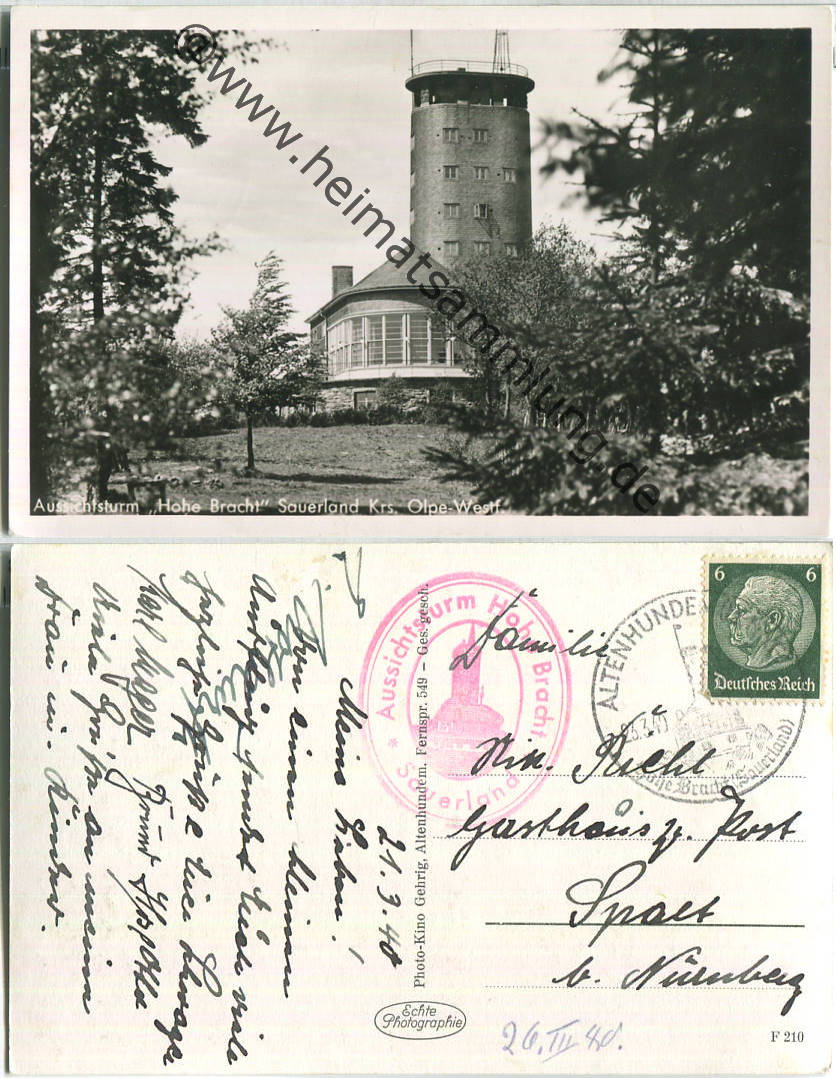 @www.heimatsammlung.de
Aussichtsturm „Hohe Bracht" Sauerland Krs. Olpe-Westf.
21.3.40
Meine Lieben!
Von einem kleinen
Ausflug sendet Euch viele
herzliche Grüße Euer Schwager
Viele Grüße an meine
Frau u. Kinder.
Photo-Kino Gehrig, Altenhundem, Fernspr. 549 – Ges. gesch.
* Aussichtsturm Hohe Bracht
Sauerland
ALTENHUNDEM
23.3.40
Hohe Bracht (Sauerland)
6 6
Deutsches Reich
Familie
Nik. Richt
Gasthaus z. Post
Spalt
b. Nürnberg
Echte
Photographie
26. III 40.
F 210